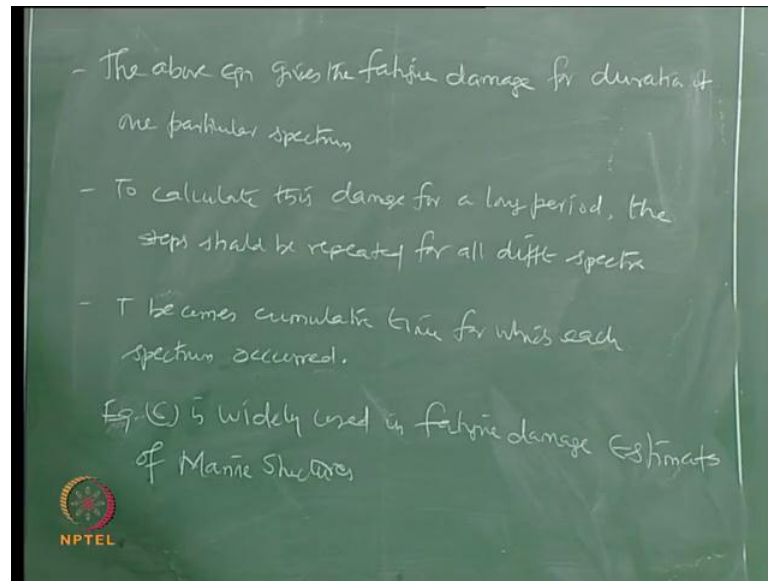 - The above Eqn gives the fatigue damage for duration of
one particular spectrum
- To calculate this damage for a long period, the
steps should be repeated for all difft spectra
- T becomes cumulative time for which each
spectrum occurred.
Eq. (6) is widely used in fatigue damage Estimates
of Marine Structures
NPTEL